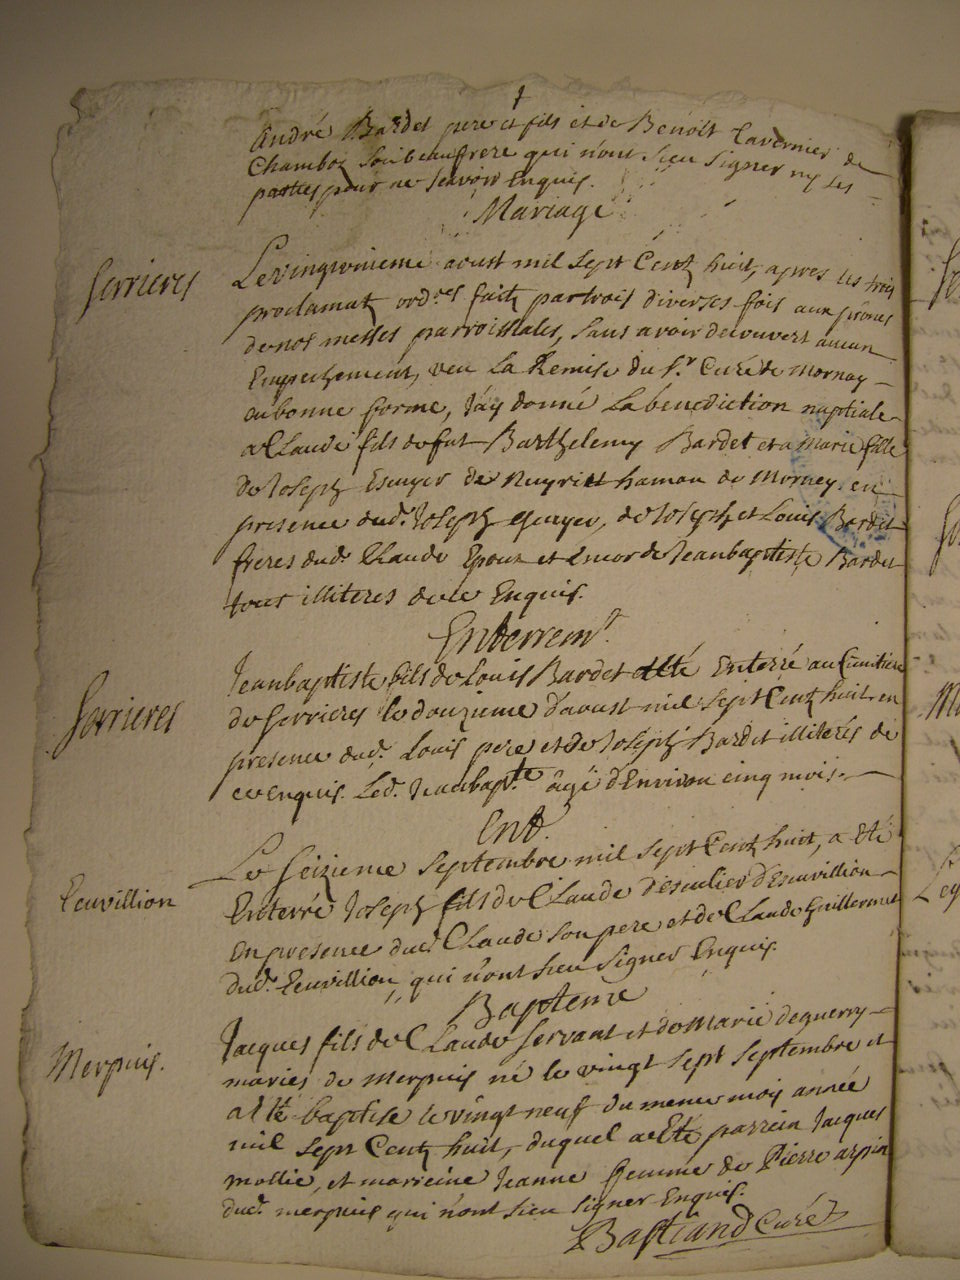 André Bardet pere et fils et de Benoît Tavernier de
Chamboz son beaufrere qui n'ont sceu signer ny les
parties pour ne sçavoir Enquis.
Mariage
Serrieres
Le vingt aoust mil sept Centz huit, apres les trois
proclamatz ord.res faitz partrois diverses fois aux prônes
de nos messes parroissiales, sans avoir decouvert aucun
Empechement, veu La Remise du Sr. Curé de Mornay
en bonne forme, J'ay donné La bénediction nuptiale
a Claude fils de fut Barthelemy Bardet et a Marie fille
de Joseph Escuyer de hamau de Mornay. en
presence dud. Joseph Escuyer, de Joseph et Louis Bardet
freres dud. Claude Epoux et de Jeanbaptiste Bardet
tous illiteres de ce Enquis.
Enterremt.
Serrieres
Jeanbaptiste fils de Louis Bardet a eté Enterré au Cimitiere
de Serrieres le douzieme d'aoust mil sept Centz huit en
presence dud. Louis pere et de Joseph Bardet illiterés de
ce enquis. Led. Jeanbapt.te âgé d'Environ cinq mois.
Ent.
Leuvillion
Le seizieme septembre mil sept Centz huit, a eté
Enterré Joseph fils de Claude d'Esculier d'Esuvillion
en presence dud. Claude son pere et de Claude Guillermet
dud. Leuvillion, qui n'ont sceu signer Enquis.
Baptême
Merpuis.
Jacques fils de Claude Servant et de Marie deguerry
mariés de merpuis né le vingt sept septembre et
a eté baptisé le vingt neuf du meme mois année
mil sept Centz huit, duquel a eté parrein Jacques
mollie, et mareine Jeanne femme de Pierre arpin
dud. merpuis qui n'ont sceu signer Enquis.
Bastiand Curé